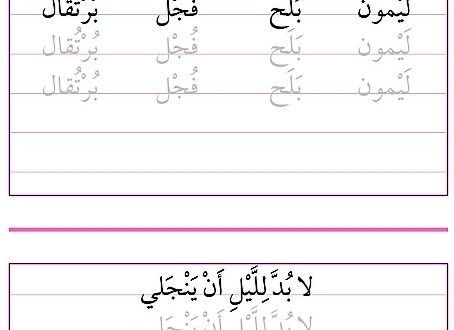 لَيْمون بَلَح فُجْل بُرْتُقال
لَيْمون بَلَح فُجْل بُرْتُقال
لَيْمون بَلَح فُجْل بُرْتُقال
لا بُدَّ لِلَّيْلِ أَنْ يَنْجَلي
لا بُدَّ لِلَّيْلِ أَنْ يَنْجَلي